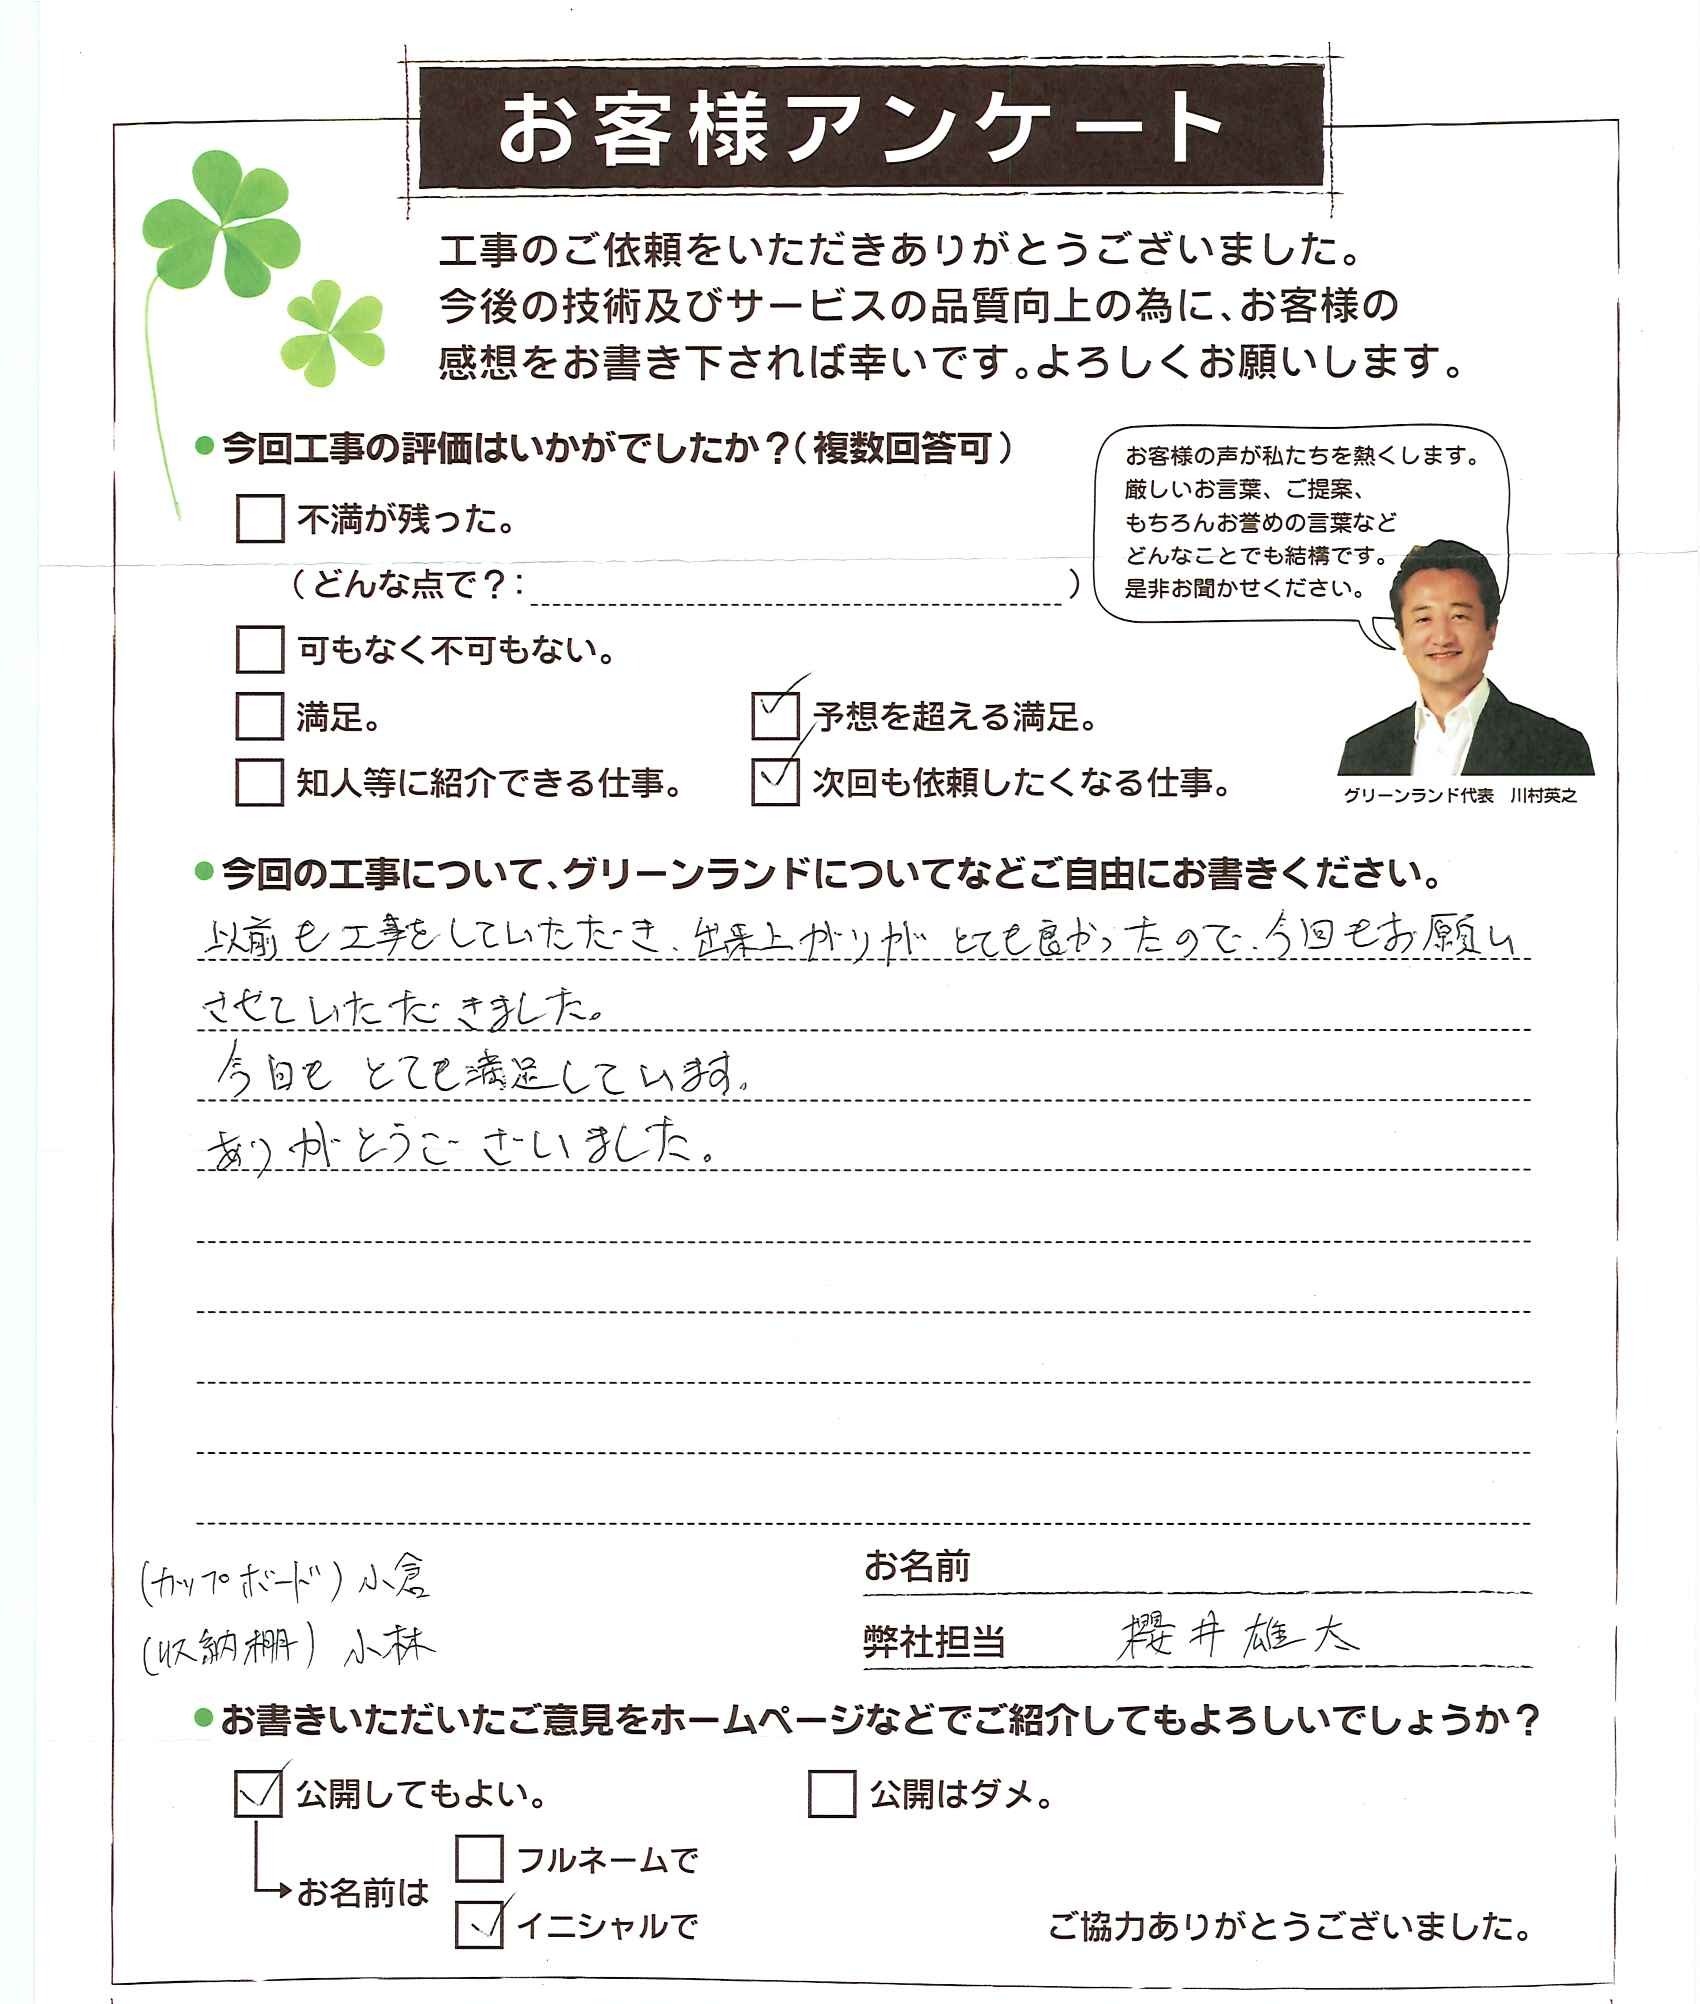 お客様アンケート
工事のご依頼をいただきありがとうございました。
今後の技術及びサービスの品質向上の為に、お客様の
感想をお書き下されば幸いです。よろしくお願いします。
●今回工事の評価はいかがでしたか?(複数回答可)
不満が残った。
(どんな点で?: )
可もなく不可もない。
満足。
予想を超える満足。
知人等に紹介できる仕事。
次回も依頼したくなる仕事。
お客様の声が私たちを熱くします。
厳しいお言葉、ご提案、
もちろんお誉めの言葉など
どんなことでも結構です。
是非お聞かせください。
グリーンランド代表 川村英之
●今回の工事について、グリーンランドについてなどご自由にお書きください。
以前も工事をしていただき、出来上がりがとても良かったので、今回もお願い
させていただきました。
今回も とても満足しています。
ありがとうございました。
(カップボード)小倉
(収納棚)小林
お名前
弊社担当 櫻井雄大
●お書きいただいたご意見をホームページなどでご紹介してもよろしいでしょうか?
公開してもよい。
公開はダメ。
お名前は
フルネームで
イニシャルで
ご協力ありがとうございました。